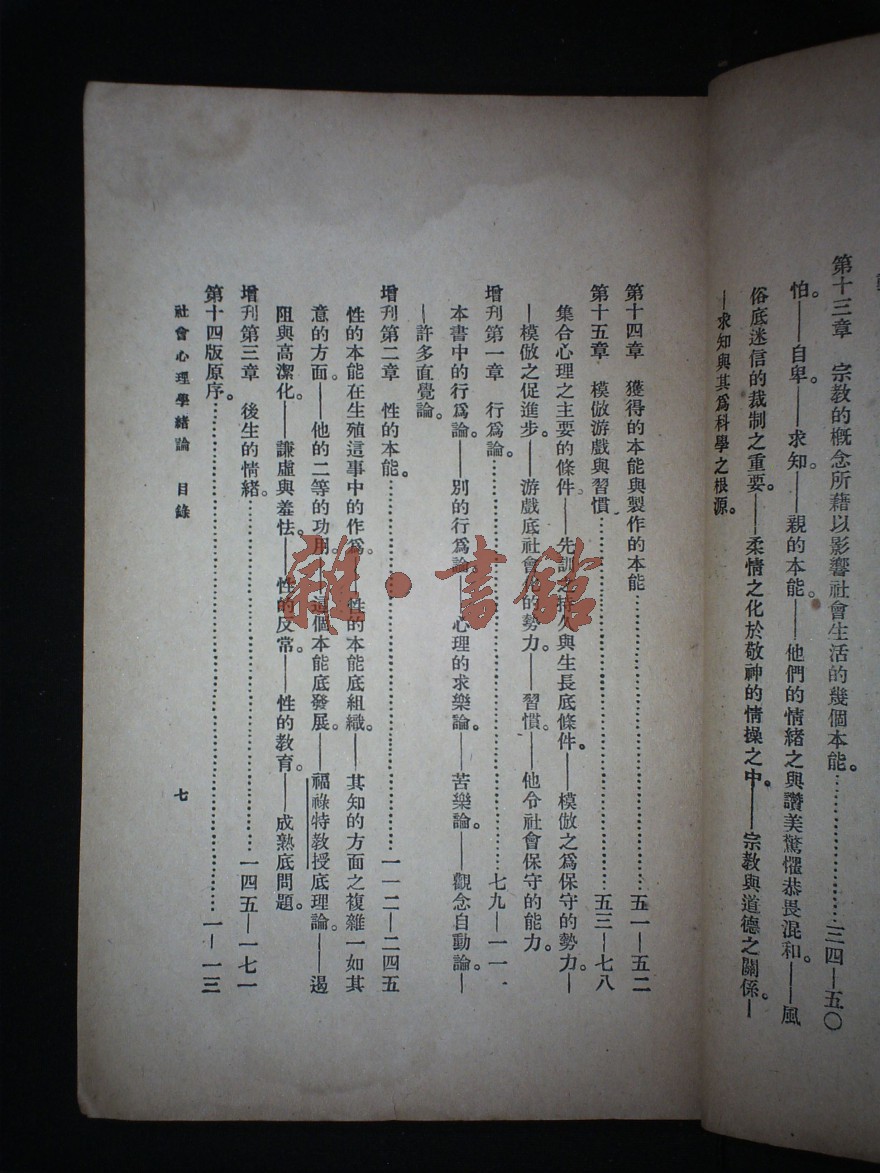 第十三章　宗教的概念所藉以影響社會生活的幾個本能。…………三四—五〇
怕。——自卑。——求知——親的本能。——他們的情緒之與讚美驚懼恭畏混和。——風
俗底迷信的裁制之重要。——柔情之化於敬神的情操之中。——宗教與道德之關係。—
—求知與其爲科學之根源。
第十四章　獲得的本能與製作的本能…………五一—五二
第十五章　模倣游戲與習慣…………五三—七八
集合心理之主要的條件。——先訓之持久與生長底條件。——模倣之爲保守的勢力。—
—模倣之促進步。——游戲底社會化的勢力。——習慣。——他分社會保守的能力。
增刊第一章　行爲論。…………七九—一一一
本書中的行爲論。——別的行爲論。——心理的求樂論。——苦樂論。——觀念自動論。—
—許多直覺論。
增刊第二章　性的本能。…………一一二—二四五
性的本能在生殖這事中的作爲。——性的本能底組織。——其知的方面之複雜一如其
意的方面。——他的二等的功用。——這個本能底發展。——福祿特教授底理論。——遏
阻與高潔化。——謙虛與羞怯。——性的反常。——性的教育。——成熟底問題。
增刊第三章　後生的情緒。…………一四五—一七一
第十四版原序。…………一—一三
社會心理學緒論　目錄
七
雜·書館